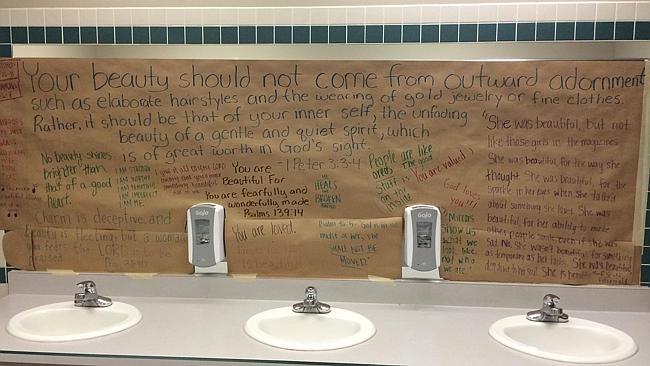 Your beauty should not come from outward adornment
such as elaborate hairstyles and the wearing of gold jewelry or fine clothes.
Rather, it should be that of your inner self, the unfading
beauty of a gentle and quiet spirit, which
is of great worth in God's sight.
-1 Peter 3:3-4
No beauty shines
brighter than
that of a good
heart.
Charm is deceptive and
beauty is fleeting, but a woman
who fears the LORD is to be
praised
You are
Beautiful For
You are fearfully and
wonderfully made
Psalms 139:14
You are loved.
HE
HEALS
the
BROKEN
SHALL NOT BE
MOVED"
People are like
the good
stuff is
on the
inside
You are valued!
God loves
you!!!
"Mirrors
show us
what we
look like,
not who
we are"
GOJO
GOJO
"She was beautiful, but not
like those girls in the magazines.
She was beautiful, for the way she
thought. She was beautiful, for the
sparkle in her eyes when she talked
about something she loves. She was
beautiful, for her ability to make
other people smile even if she was
sad. No, she wasn't beautiful for something
as temporary as her looks. She was beautiful,
deep down to her soul. She is beautiful."